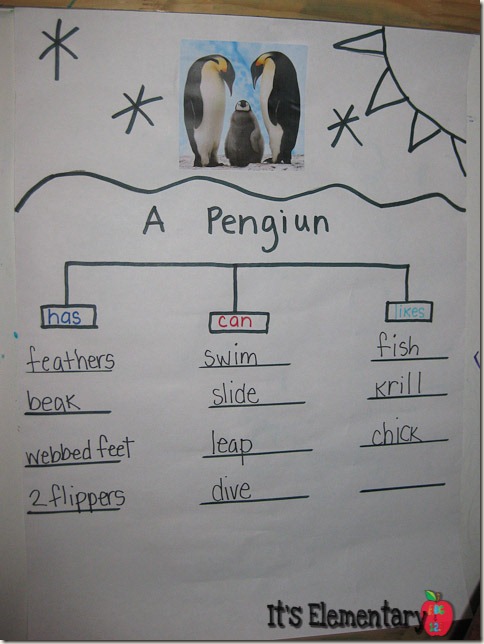 A Pengiun
has can likes
feathers swim fish
beak slide krill
webbed feet leap chick
2 flippers dive
It's Elementary